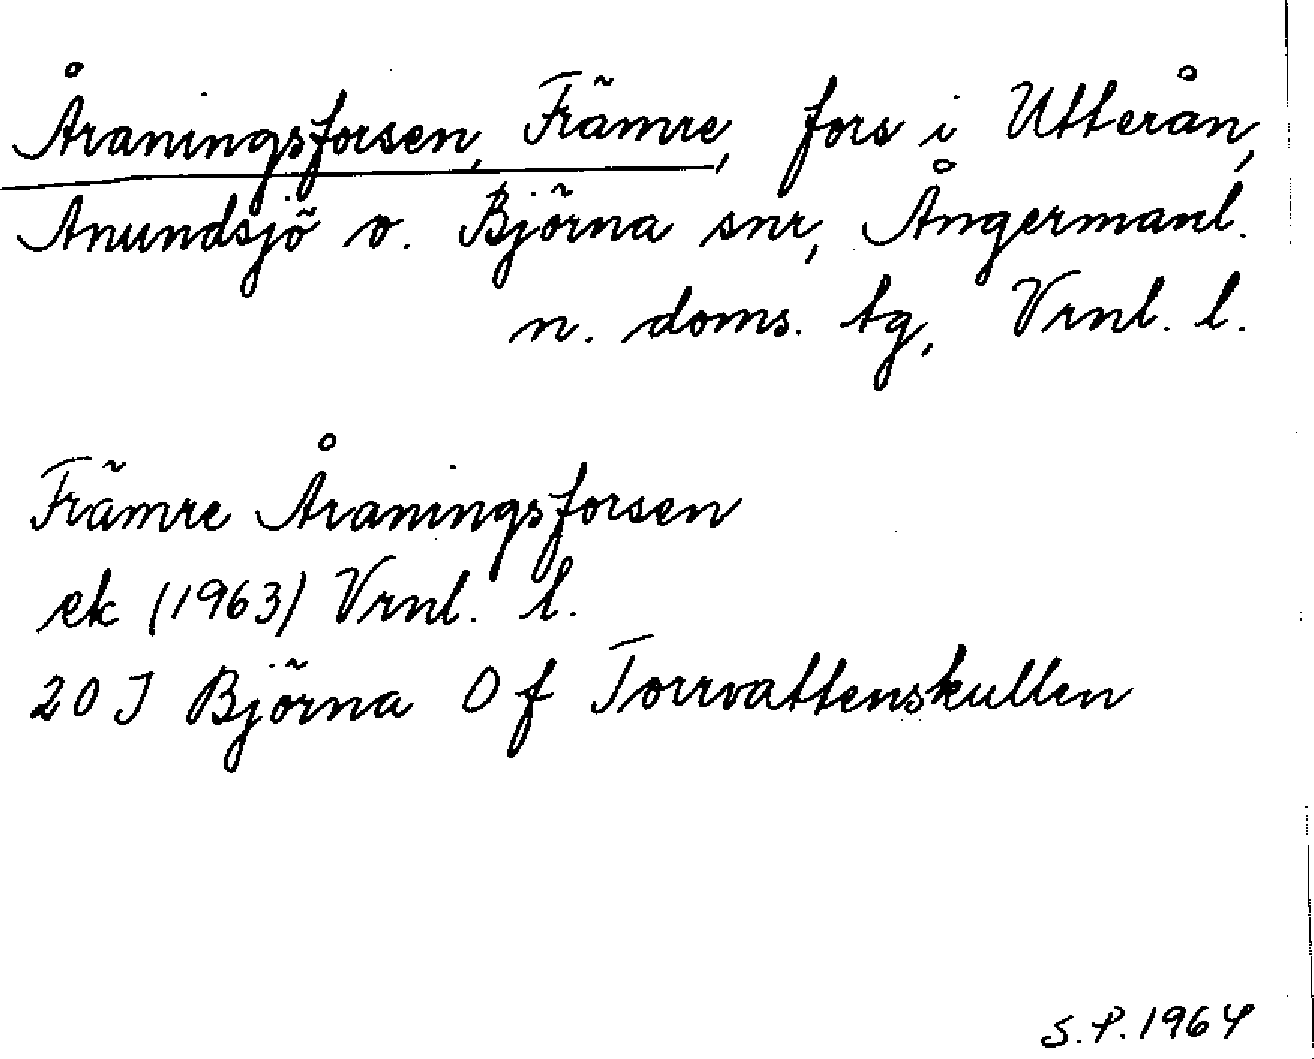 Åraningsforsen, Främre, fors i Utterån,
Anundsjö o. Björna snr, Ångermanl.
n. doms. tg, Vrnl. l.
Främre Åraningsforsen
ek (1963) Vrnl. l.
20 J Björna 0 f Torrvattenskullen
S.P. 1964